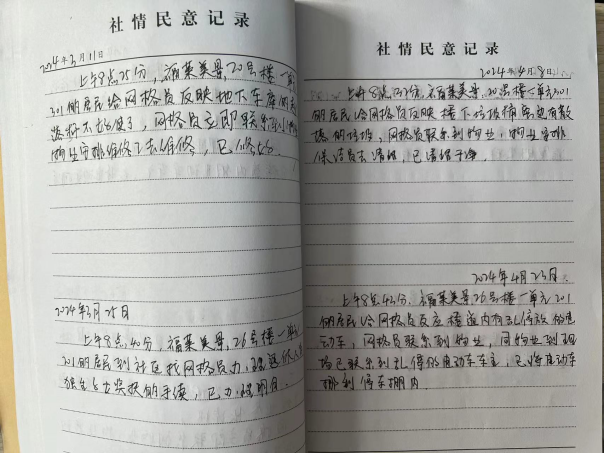 社情民意记录
2024年3月11日
上午8点25分，福莱美景，20号楼一单
301的居民给网格员反映地下车库侧
不太好使了，网格员立即联系到
物业安排维修工去维修，已修好
2024年3月25日
上午8点40分，福莱美景，26号楼一单元
201的居民到社区找网格员办理退休人
独生子女奖扶的手续，已办理明白。
社情民意记录
2024年4月8日
上午8点32分，福莱美景，20号楼一单元301
的居民给网格员反映楼下垃圾桶旁边有散
的垃圾，网格员联系到物业，物业安排
保洁员去清理，已清理干净。
2024年4月23日
上午8点43分，福莱美景26号楼一单元201
的居民给网格员反应楼道内有乱停放的电
动车，网格员联系到物业，同物业到现
场已联系到乱停的电动车车主，已将电动车
挪到停车棚内